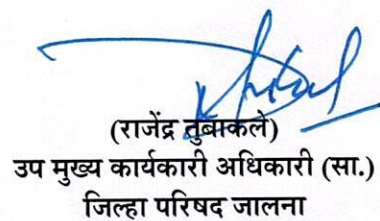 (राजेंद्र तुबाकले)
उप मुख्य कार्यकारी अधिकारी (सा.)
जिल्हा परिषद जालना